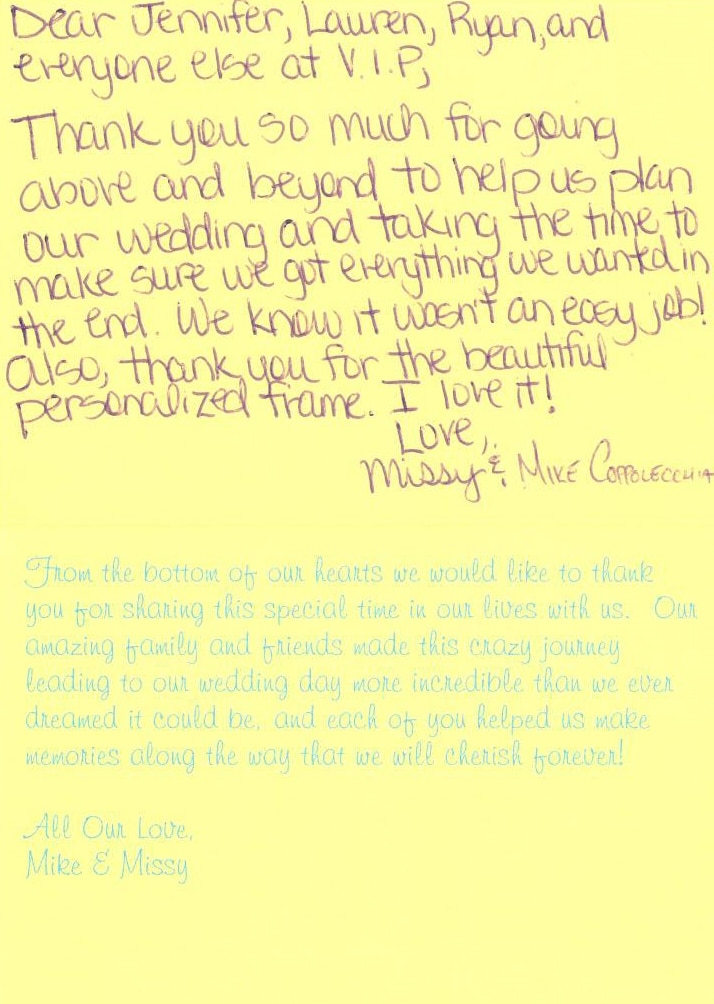 Dear Jennifer, Lauren, Ryan, and
everyone else at V.I.P,
Thank you so much for going
above and beyond to help us plan
our wedding and taking the time to
make sure we got everything we wanted in
the end. We know it wasn't an easy job!
Also, thank you for the beautiful
personalized frame. I love it!
Love,
Missy & Mike Coppolecchia
From the bottom of our hearts we would like to thank
you for sharing this special time in our lives with us. Our
amazing family and friends made this crazy journey
leading to our wedding day more incredible than we ever
dreamed it could be, and each of you helped us make
memories along the way that we will cherish forever!
All Our Love,
Mike & Missy